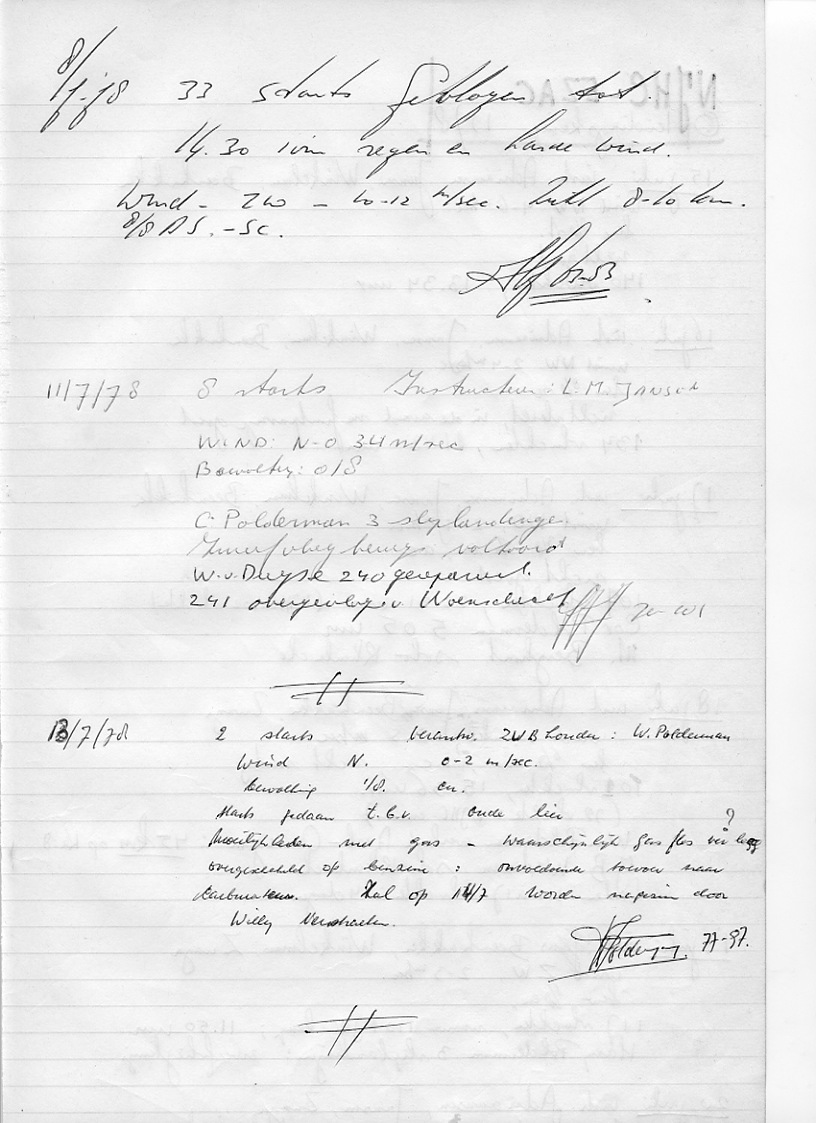 8/7-78 33 starts gevlogen tot.
14.30 ivm regen en harde wind.
Wind - ZW - 10-12 m/sec. Zicht 8-10 km.
8/8 AS. -SC.
11/7/78 8 starts Instructeur: L.M. JANSEN
WIND: N-O 34 m/sec
Bewolking: 0/8
C. Polderman 3 sliplandingen
voltooid
W. v. Duyse 240 gerepareerd.
241 overgevlogen v. Woensdrecht
13/7/78 2 starts verantw. ZWB houder: W. Polderman
Wind N. 0-2 m/sec.
bewolking 1/8. cu.
starts gedaan t.b.v. oude lier
Moeilijkheden met gas - waarschijnlijk gas fles leeg ?
overgeschakeld op benzine: onvoldoende toevoer naar
carburateur. Zal op 14/7 worden nagezien door
Willy
Polderman. 77-97.